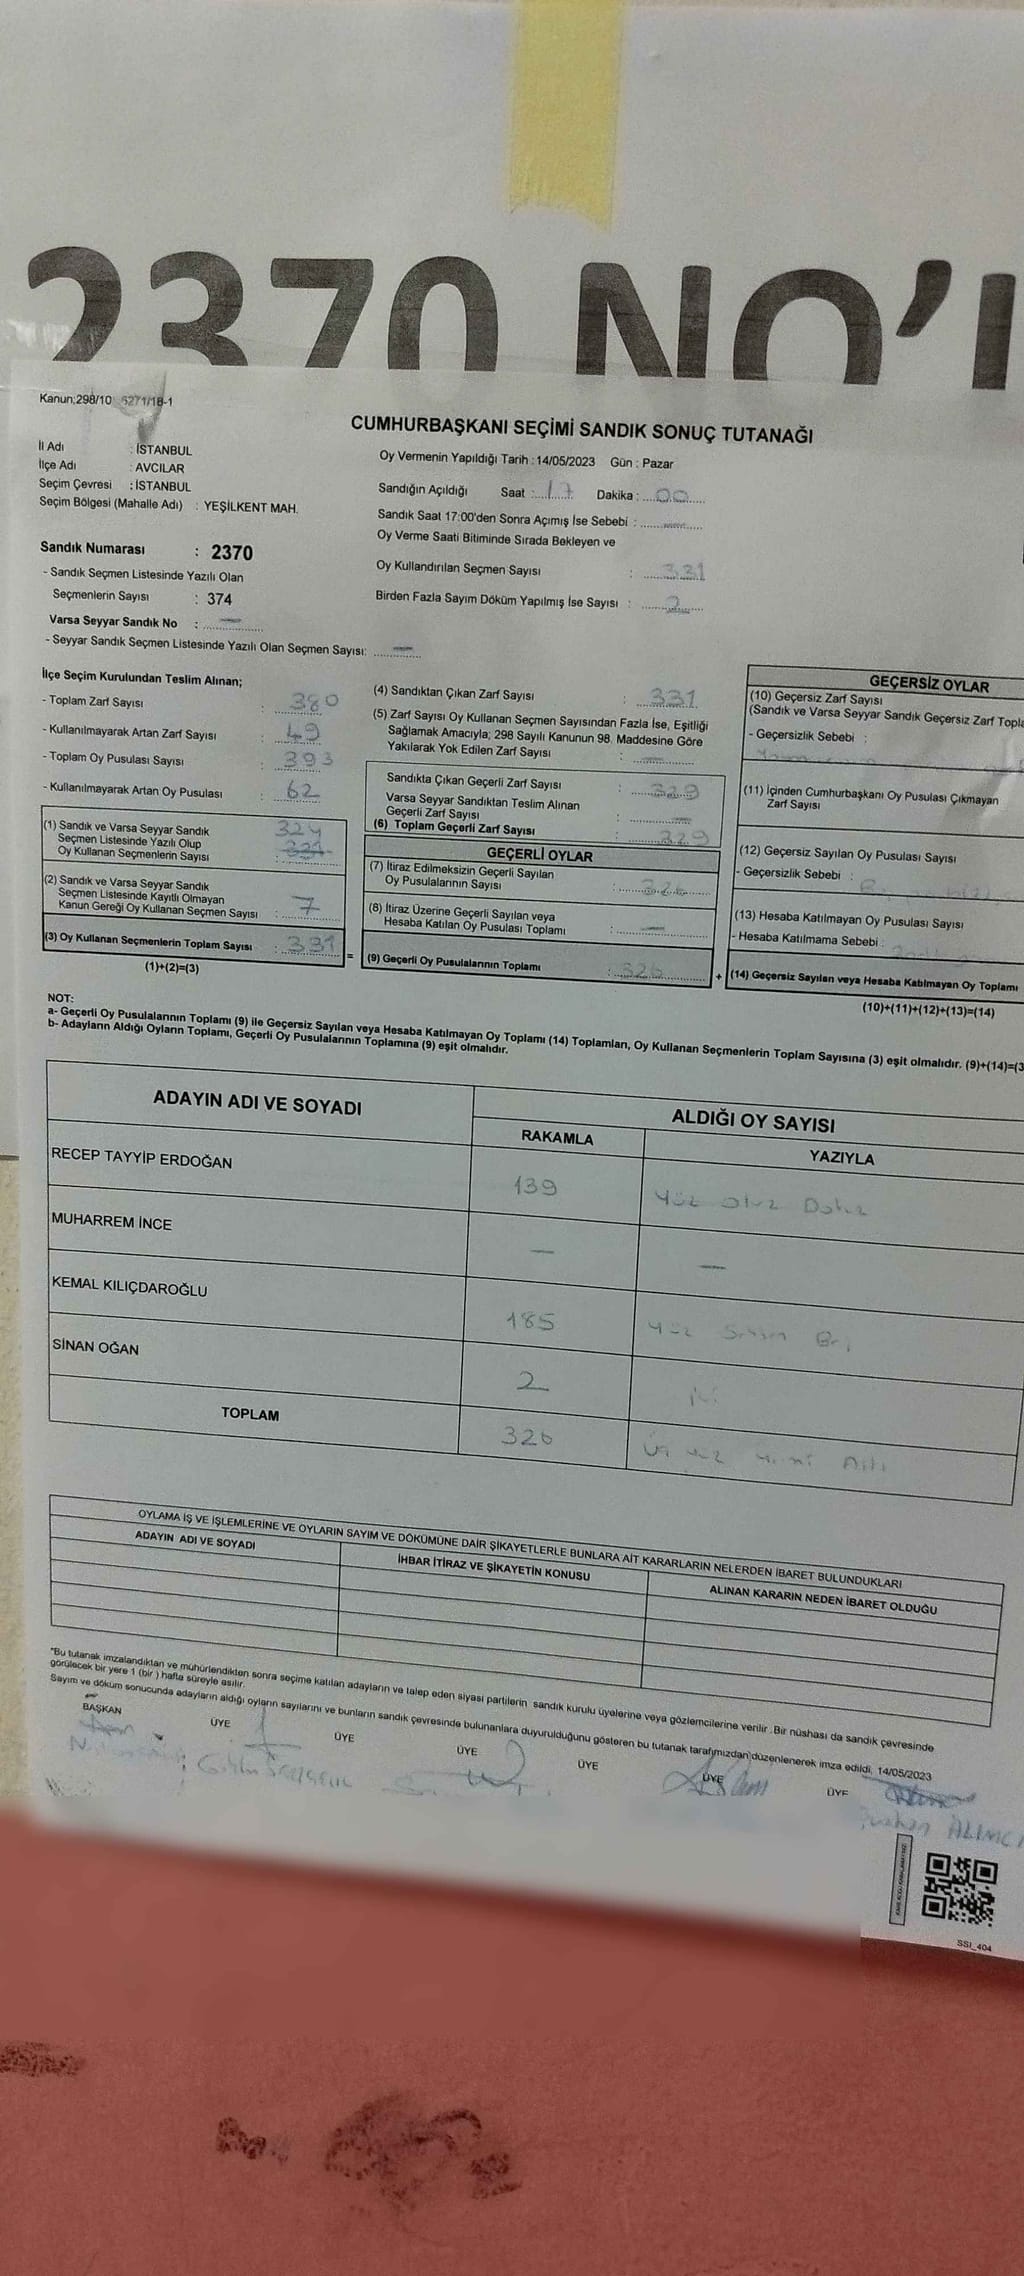 2370 NO'
Kanun;298/10 6271/18-1
CUMHURBAŞKANI SEÇİMİ SANDIK SONUÇ TUTANAĞI
İl Adı : İSTANBUL
İlçe Adı : AVCILAR
Seçim Çevresi : İSTANBUL
Seçim Bölgesi (Mahalle Adı) : YEŞİLKENT MAH.
Oy Vermenin Yapıldığı Tarih : 14/05/2023 Gün : Pazar
Sandığın Açıldığı Saat : 17 Dakika : 00
Sandık Saat 17:00'den Sonra Açımış İse Sebebi : —
Oy Verme Saati Bitiminde Sırada Bekleyen ve
Oy Kullandırılan Seçmen Sayısı : 331
Birden Fazla Sayım Döküm Yapılmış İse Sayısı : 2
Sandık Numarası : 2370
- Sandık Seçmen Listesinde Yazılı Olan
Seçmenlerin Sayısı : 374
Varsa Seyyar Sandık No : —
- Seyyar Sandık Seçmen Listesinde Yazılı Olan Seçmen Sayısı: —
İlçe Seçim Kurulundan Teslim Alınan;
- Toplam Zarf Sayısı : 380
- Kullanılmayarak Artan Zarf Sayısı : 49
- Toplam Oy Pusulası Sayısı : 393
- Kullanılmayarak Artan Oy Pusulası : 62
(1) Sandık ve Varsa Seyyar Sandık 324
Seçmen Listesinde Yazılı Olup
Oy Kullanan Seçmenlerin Sayısı : 331
(2) Sandık ve Varsa Seyyar Sandık
Seçmen Listesinde Kayıtlı Olmayan
Kanun Gereği Oy Kullanan Seçmen Sayısı : 7
(3) Oy Kullanan Seçmenlerin Toplam Sayısı : 331
(1)+(2)=(3)
(4) Sandıktan Çıkan Zarf Sayısı : 331
(5) Zarf Sayısı Oy Kullanan Seçmen Sayısından Fazla İse, Eşitliği
Sağlamak Amacıyla; 298 Sayılı Kanunun 98. Maddesine Göre
Yakılarak Yok Edilen Zarf Sayısı : —
Sandıkta Çıkan Geçerli Zarf Sayısı : 329
Varsa Seyyar Sandıktan Teslim Alınan
Geçerli Zarf Sayısı : —
(6) Toplam Geçerli Zarf Sayısı : 329
GEÇERLİ OYLAR
(7) İtiraz Edilmeksizin Geçerli Sayılan
Oy Pusulalarının Sayısı : 326
(8) İtiraz Üzerine Geçerli Sayılan veya
Hesaba Katılan Oy Pusulası Toplamı : —
= (9) Geçerli Oy Pusulalarının Toplamı : 326 +
GEÇERSİZ OYLAR
(10) Geçersiz Zarf Sayısı
(Sandık ve Varsa Seyyar Sandık Geçersiz Zarf Topla
- Geçersizlik Sebebi :
(11) İçinden Cumhurbaşkanı Oy Pusulası Çıkmayan
Zarf Sayısı
(12) Geçersiz Sayılan Oy Pusulası Sayısı
- Geçersizlik Sebebi :
(13) Hesaba Katılmayan Oy Pusulası Sayısı
- Hesaba Katılmama Sebebi :
(14) Geçersiz Sayılan veya Hesaba Katılmayan Oy Toplamı
(10)+(11)+(12)+(13)=(14)
NOT:
a- Geçerli Oy Pusulalarının Toplamı (9) ile Geçersiz Sayılan veya Hesaba Katılmayan Oy Toplamı (14) Toplamları, Oy Kullanan Seçmenlerin Toplam Sayısına (3) eşit olmalıdır. (9)+(14)=(3
b- Adayların Aldığı Oyların Toplamı, Geçerli Oy Pusulalarının Toplamına (9) eşit olmalıdır.
ADAYIN ADI VE SOYADI
ALDIĞI OY SAYISI
RAKAMLA YAZIYLA
RECEP TAYYİP ERDOĞAN 139 Yüz Otuz Dokuz
MUHARREM İNCE — —
KEMAL KILIÇDAROĞLU 185 Yüz Seksen Beş
SİNAN OĞAN 2 iki
TOPLAM 326 Üç Yüz Yirmi Altı
OYLAMA İŞ VE İŞLEMLERİNE VE OYLARIN SAYIM VE DÖKÜMÜNE DAİR ŞİKAYETLERLE BUNLARA AİT KARARLARIN NELERDEN İBARET BULUNDUKLARI
ADAYIN ADI VE SOYADI İHBAR İTİRAZ VE ŞİKAYETİN KONUSU ALINAN KARARIN NEDEN İBARET OLDUĞU
"Bu tutanak imzalandıktan ve mühürlendikten sonra seçime katılan adayların ve talep eden siyasi partilerin sandık kurulu üyelerine veya gözlemcilerine verilir. Bir nüshası da sandık çevresinde
görülecek bir yere 1 (bir ) hafta süreyle asılır.
Sayım ve döküm sonucunda adayların aldığı oyların sayılarını ve bunların sandık çevresinde bulunanlara duyurulduğunu gösteren bu tutanak tarafımızdan düzenlenerek imza edildi, 14/05/2023
BAŞKAN ÜYE ÜYE ÜYE ÜYE ÜYE ÜYE
SSI_404